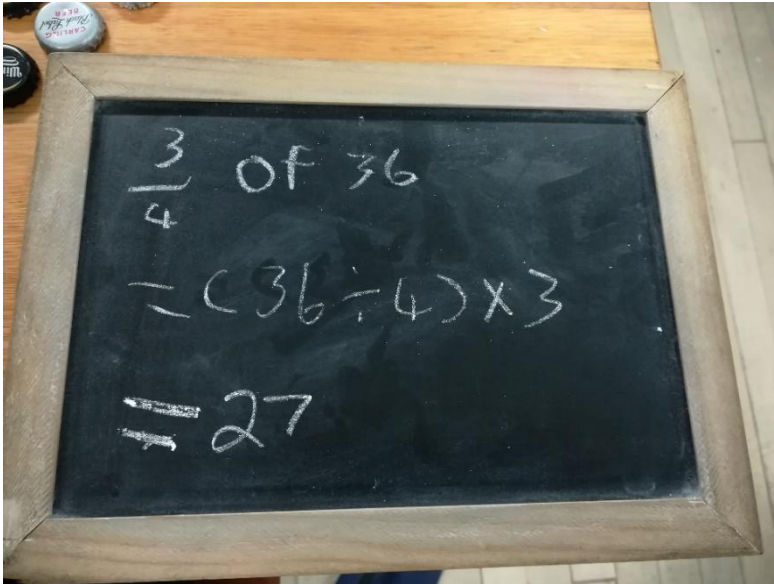 CARLING
Black Label
BEER
3/4 OF 36
= (36 ÷ 4) × 3
= 27